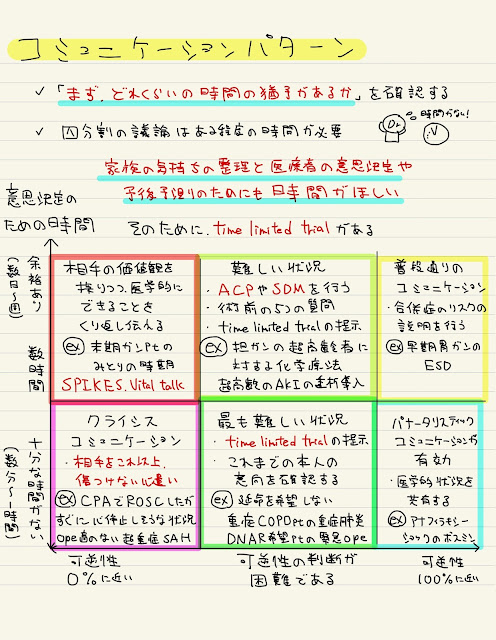 コミュニケーションパターン
✓ 「まず、どれくらいの時間の猶予があるか」を確認する
✓ 四分割の議論はある程度の時間が必要
Dr
時間がない!
家族の気持ちの整理と医療者の意思決定や
予後予測のためにも時間がほしい
そのために、time limited trialがある
意思決定の
ための時間
余裕あり
(数日〜週)
数時間
十分な時間がない
(数分〜1時間)
相手の価値観を
探りつつ、医学的に
できることを
くり返し伝える
ex 末期がんptの
みとりの時期
SPIKES、Vital talk
難しい状況
・ACPやSDMを行う
・術前の5つの質問
・time limited trialの提示
ex 担がんの超高齢者に
対する化学療法
超高齢のAKIの透析導入
普段通りの
コミュニケーション
・合併症のリスクの
説明を行う
ex 早期胃がんの
ESD
クライシス
コミュニケーション
・相手をこれ以上、
傷つけない心遣い
ex CPAでROSCしたが
すぐに心停止しそうな状況
Ope適のない超重症SAH
最も難しい状況
・time limited trialの提示
・これまでの本人の
意向を確認する
ex 延命を希望しない
重症COPDptの重症肺炎
DNAR希望ptの緊急Ope
パターナリスティック
コミュニケーションが
有効
・医学的状況を
共有する
ex アナフィラキシー
ショックのボスミン
可逆性
0%に近い
可逆性の判断が
困難である
可逆性
100%に近い